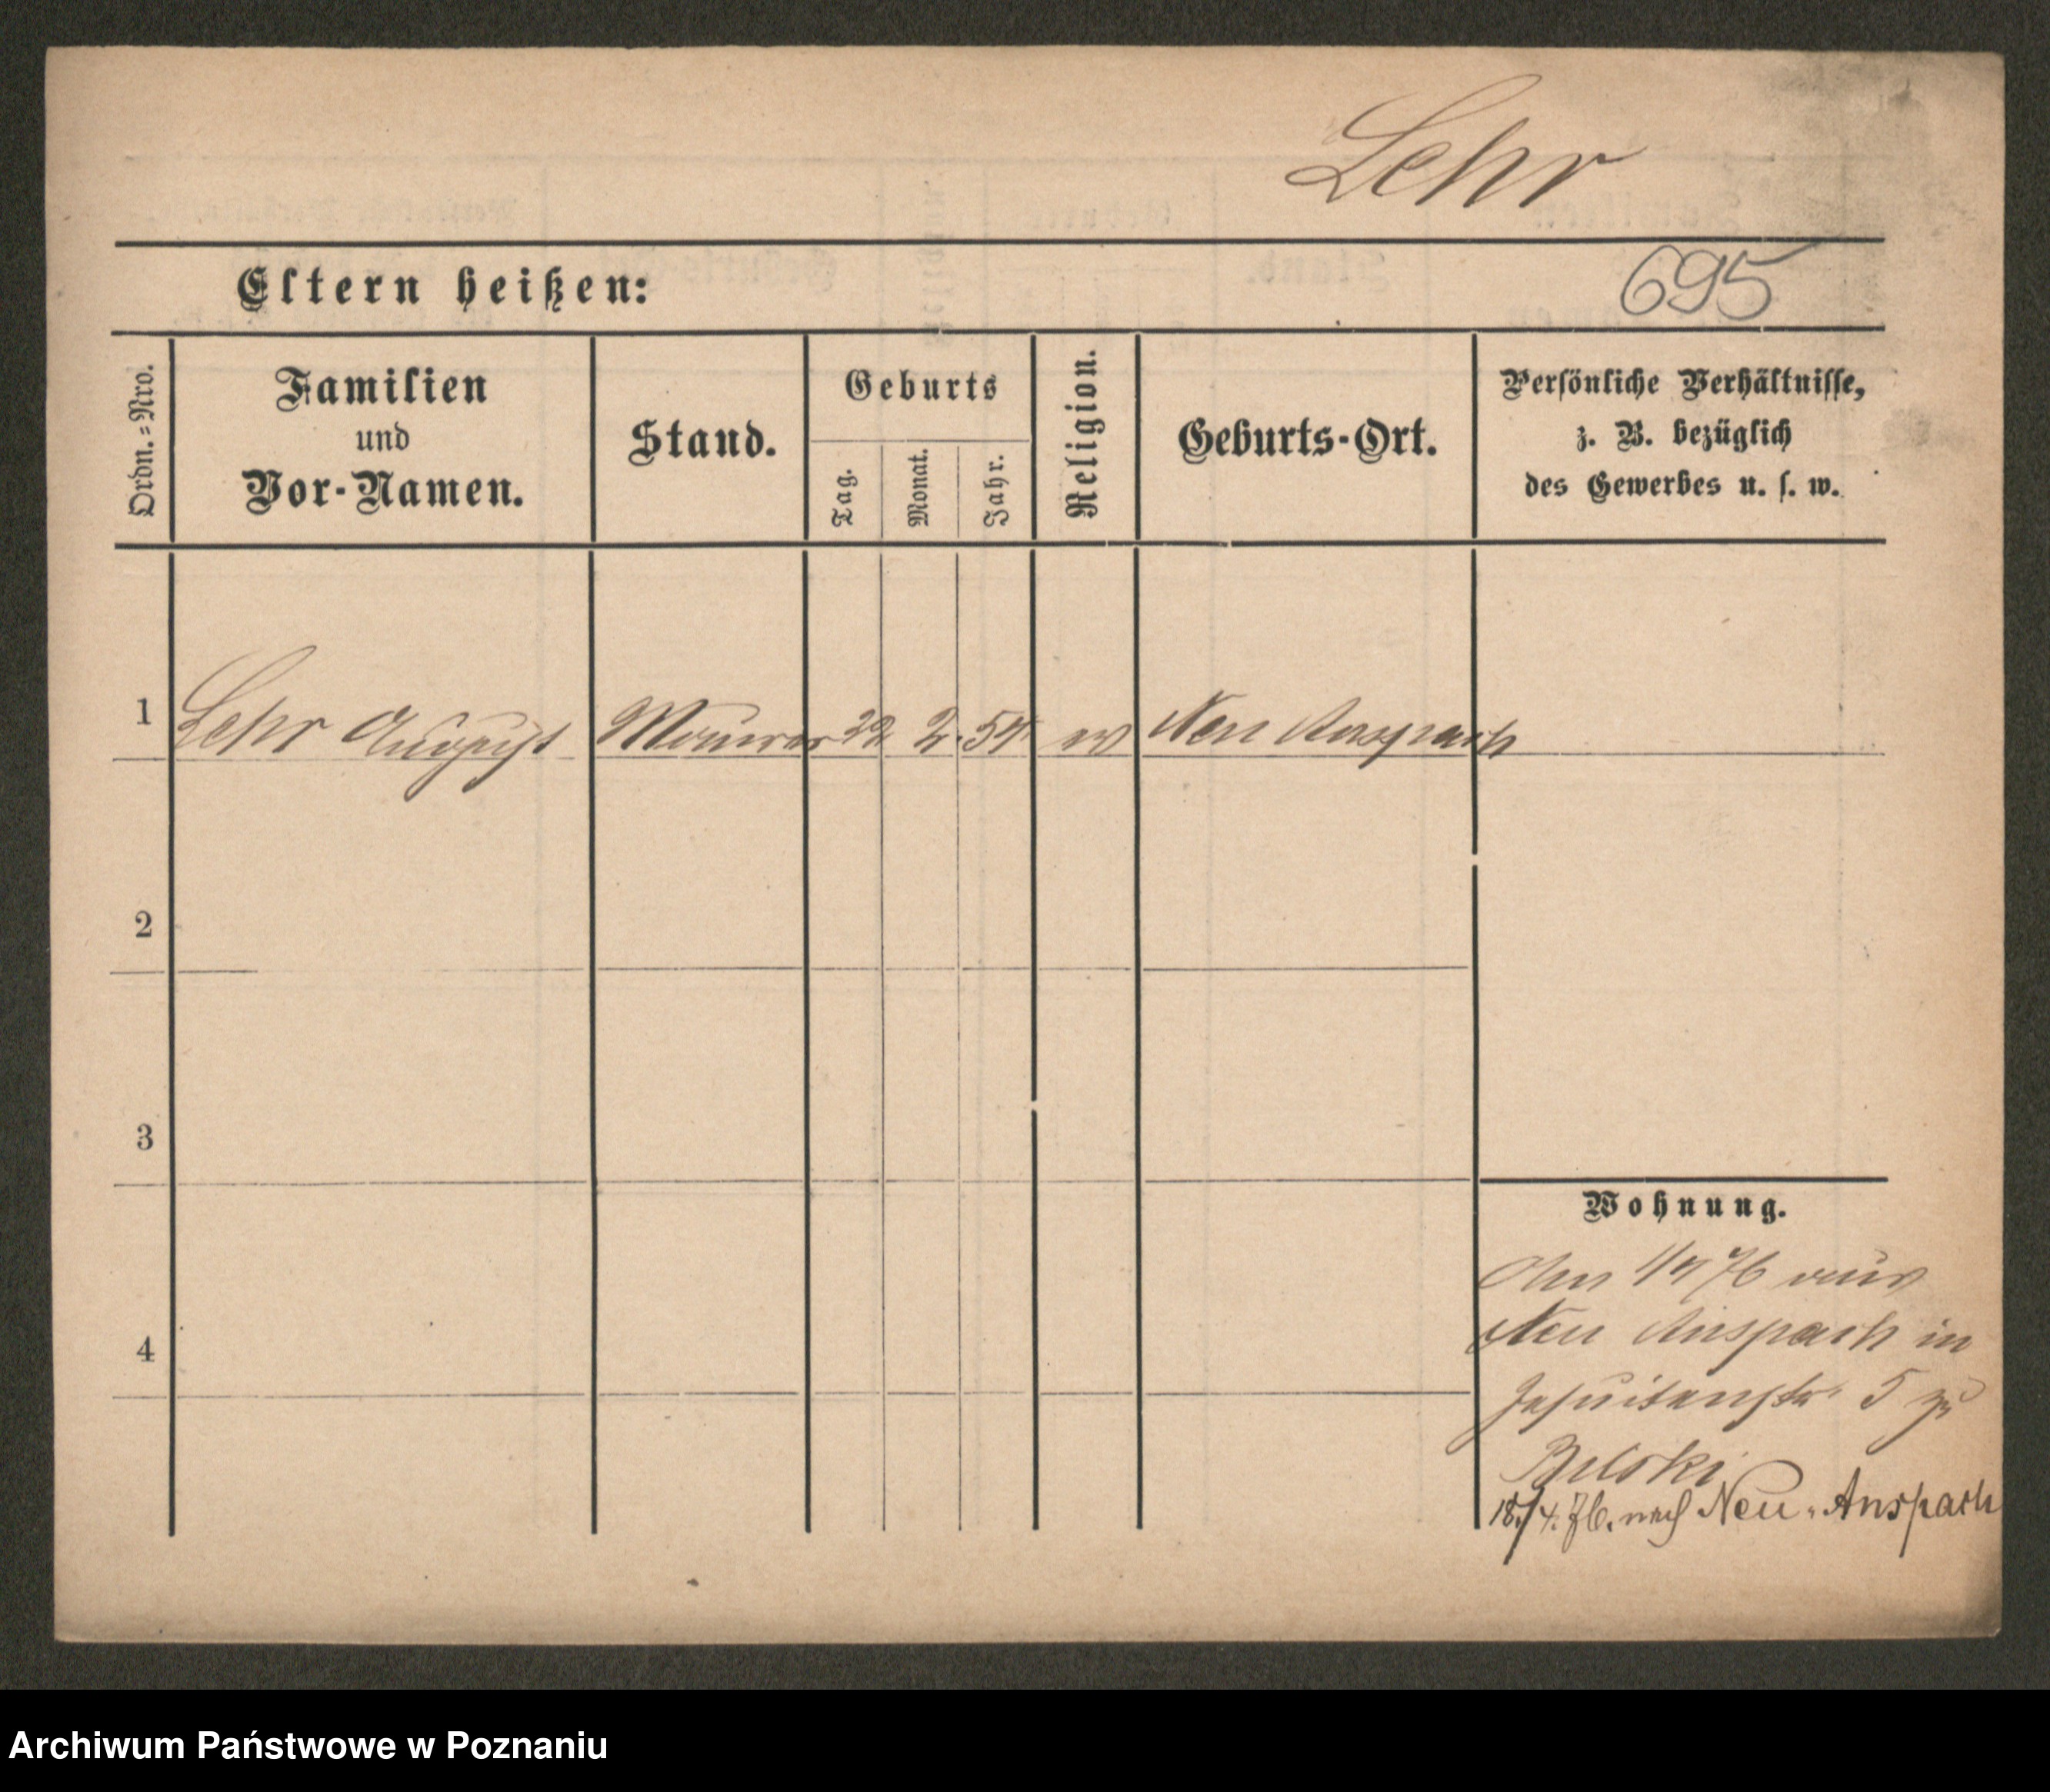 Lehr
Eltern heißen:
695
Ordn.=Nro.
Familien
und
Vor-Namen.
Stand.
Geburts
Tag.
Monat.
Jahr.
Religion.
Geburts-Ort.
Persönliche Verhältnisse,
z. B. bezüglich
des Gewerbes u. s. w.
1 Lehr August Maurer 22 2. 54 ev Neu Anspach
2
3
4
Wohnung.
Am 1/4 76 aus
Neu Anspach in
Jesuitenstr. 5 zu
18./4. 76. nach Neu-Anspach
Archiwum Państwowe w Poznaniu